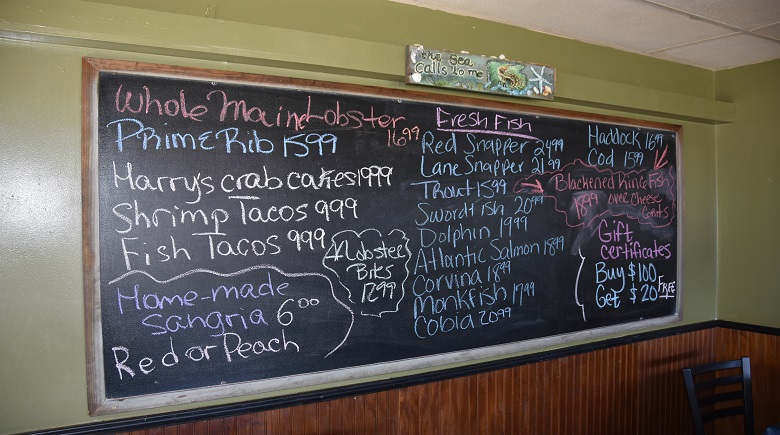 the sea
calls to me
Whole Maine Lobster
1699
Prime Rib 1599
Harry's crab cakes 1999
Shrimp Tacos 999
Fish Tacos 999
Lobster
Bites
1299
Home-made
Sangria 6 00
Red or Peach
Fresh Fish
Red Snapper 2499
Lane Snapper 2199
Trout 1599
Swordfish 2099
Dolphin 1999
Atlantic Salmon 1899
Corvina 1899
Monkfish 1799
Cobia 2099
Haddock 1699
Cod 1599
Blackened King Fish
1899 over Cheese
Grits
Gift
certificates
Buy $100
Get $20 FREE